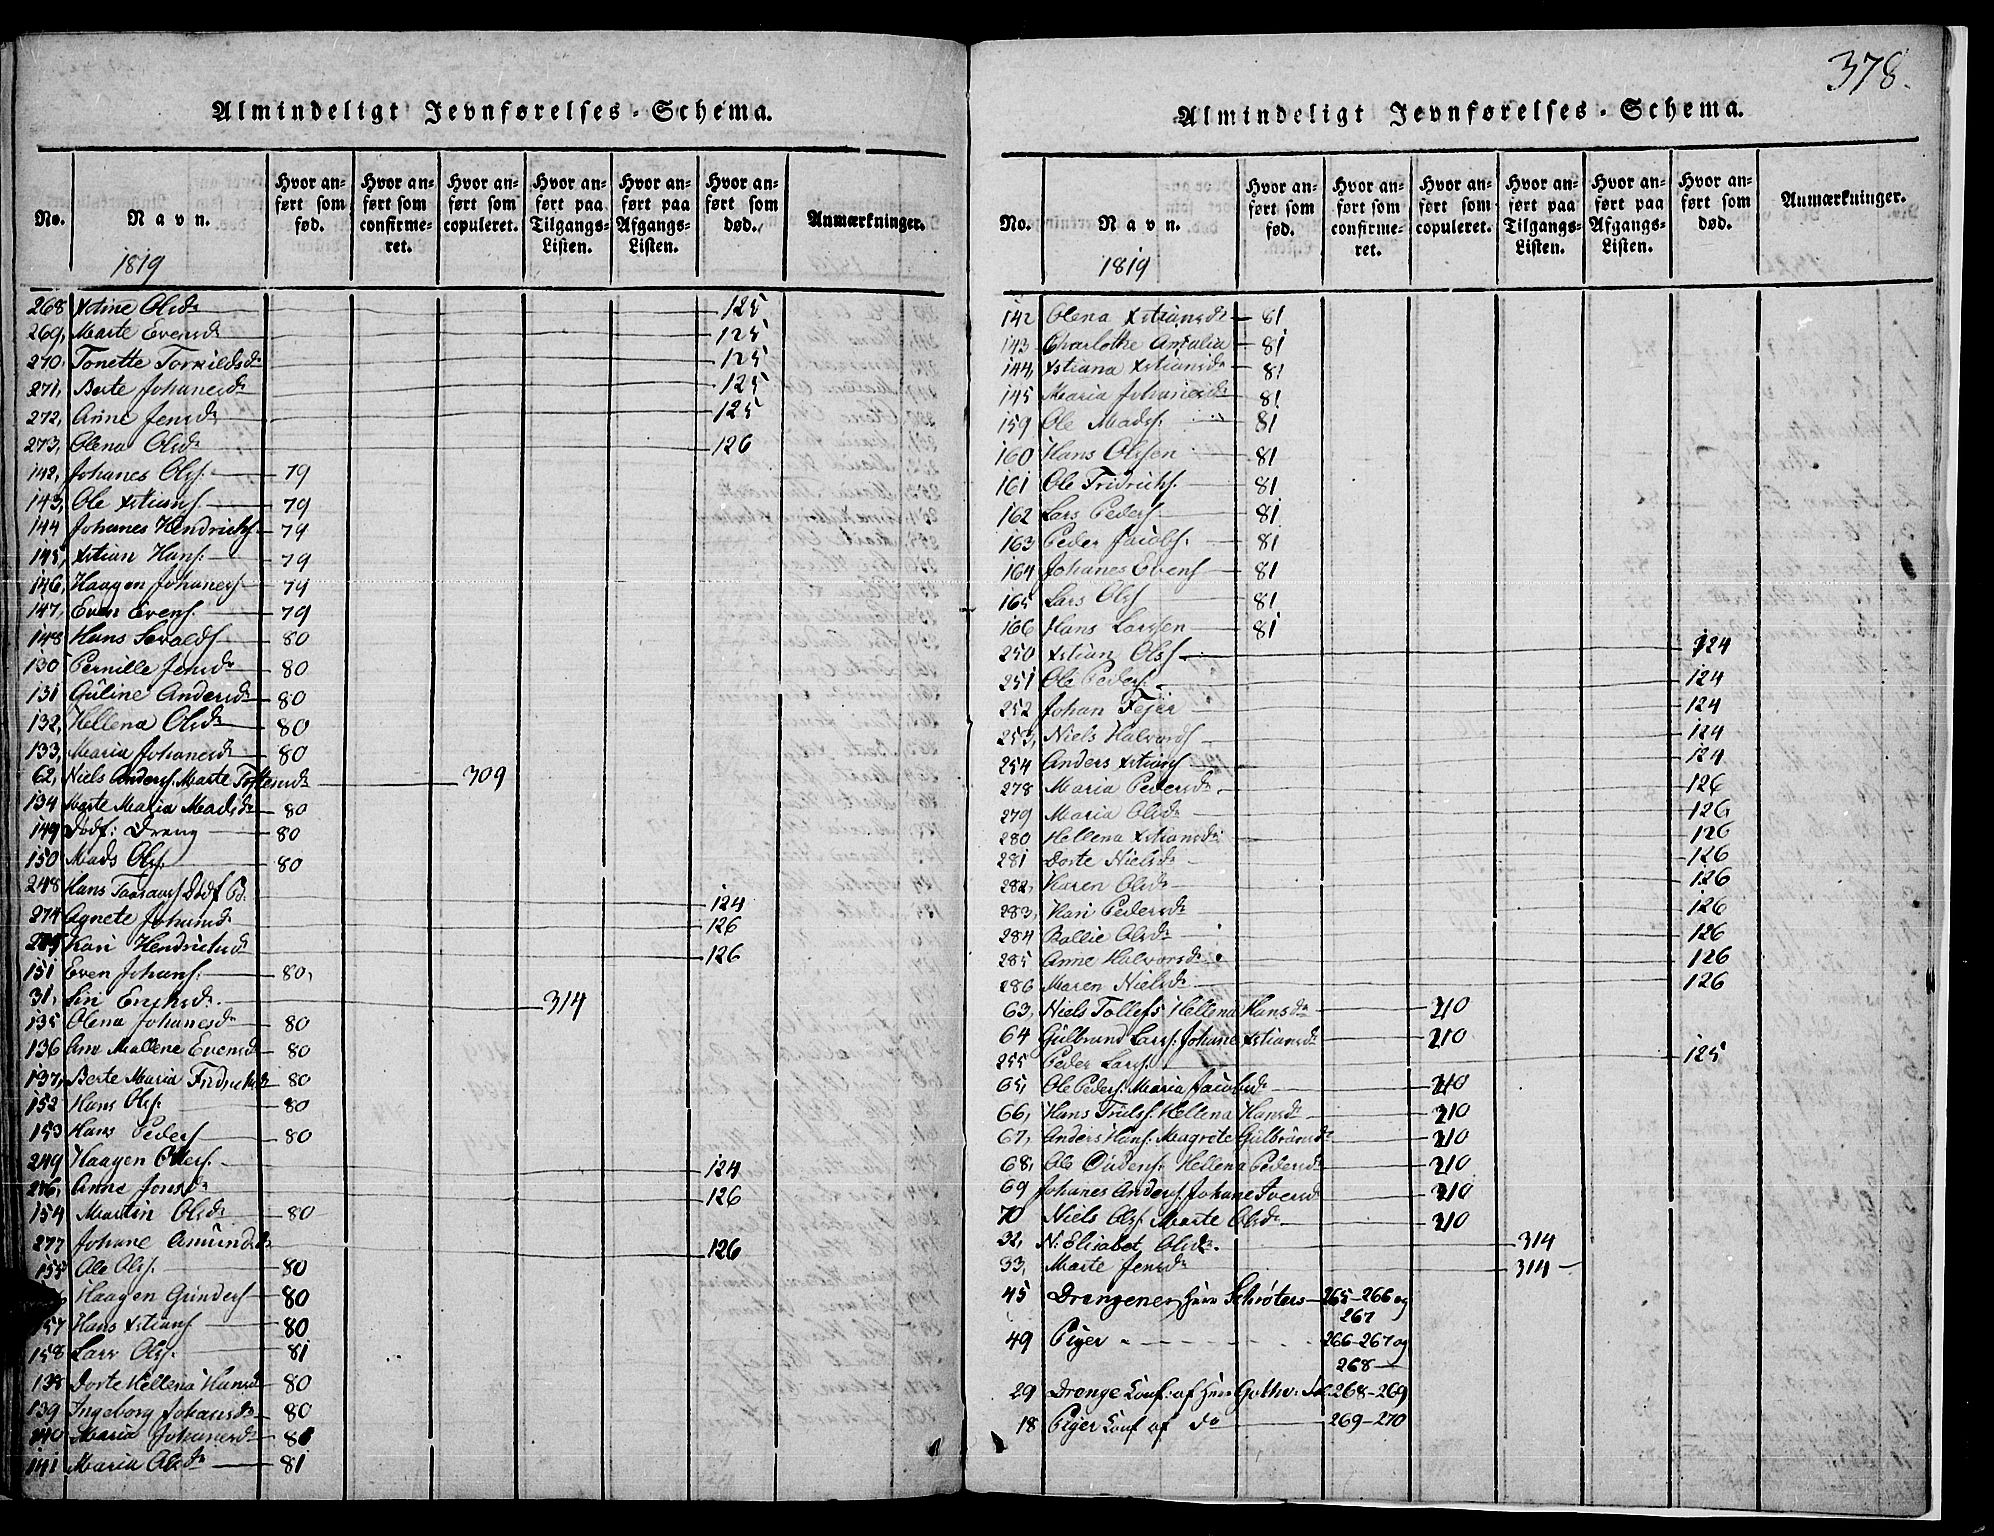 378.
Almindeligt Jevnførelses-Schema.
No. Navn. Hvor anført som fød. Hvor anført som confirmeret. Hvor anført som copuleret. Hvor anført paa Tilgangs-Listen. Hvor anført paa Afgangs-Listen. Hvor anført som død. Anmærkninger.
1819
268 Xstine Olsdr 125
269, Marte Evensdr 125
270, Tonette Torkildsdr 125
271, Berte Johanesdr 125
272, Anne Jensdr 125
273, Olena Olsdr 126
142, Johanes Olsf. 79
143, Ole Xstiansf. 79
144 Johanes Hendrichsf. 79
145, Xstian Hansf. 79
146, Haagen Johanesf. 79
147, Even Evensf. 79
148 Hans 80
130 Pernille Jensdr 80
131 Guline Andersdr 80
132, Hellena Olsdr 80
133, Maria Johanesdr 80
62, Niels Andersf. Marte Tostensdr 309
134 Marte Maria Madsdr 80
149 Dødf: Dreng 80
150 Mads Olsf. 80
248 Hans Dødf 124
274 Agnete Johansdr 126
275 Kari Hendrichsdr 126
151 Even Johansf. 80,
31, Siri Erichsdr. 314
135 Olena Johanesdr 80
136 Ane Mallene Evensdr 80
137, Berte Maria Fridrichsdr 80
152 Hans Olsf. 80
153 Hans Pedersf 80
249 Haagen 124
276, Anne Jonsdr 126
154 Martin Olsdr 80
277 Johane Amundsdr 126
155 Ole Olsf. 80
Haagen Gundersf 80
157 Hans Xstiansf 80
158 Lars Olsf. 81
138 Dorte Hellena Hansdr 80
139 Ingeborg Johansdr 80
140 Maria Johanesdr 81
141 Maria Olsdr 81
Almindeligt Jevnførelses-Schema.
No. Navn. Hvor anført som fød. Hvor anført som confirmeret. Hvor anført som copuleret. Hvor anført paa Tilgangs-Listen. Hvor anført paa Afgangs-Listen. Hvor anført som død. Anmærkninger.
1819
142 Olena Xstiansdr 81
143 Charlothe Amalia 81
144, Xstiana Xstiansdr 81
145 Maria Johanesdr 81
159 Ole Madsf. 81
160 Hans Olssen 81
161 Ole Fridrichsf. 81
162 Lars Pedersf 81
163 Peder Jacobsf. 81
164 Johanes Evensf 81
165 Lars Olsf 81
166 Hans Larssen 81
250 Xstian Olsf 124
251 Ole Pedersf. 124
252 Johan Fejer 124
253, Niels Halvorsf 124
254 Anders Xstiansf 124
278 Maria Pedersdr 126
279 Maria Olsdr 126
280 Hellena Xstiansdr 126
281 Dorte Nielsdr 126
282, Karen Olsdr 126
283, Kari Pedersdr 126
284 Olsdr 126
285 Anne Halvorsdr 126
286 Maren Nielsdr 126
63, Niels Tollefs Hellena Hansdr 210
64 Gulbrand Larsf. Johane Xstiansdr 210
255 Peder Larsf. 125
65, Ole Pedersf. Maria Jacobsdr 210
66, Hans Trulsf. Hellena Hansdr 210
67, Anders Hansf. Magrete Gulbransdr 210
68, Ole Hellena Pedersdr 210
69 Johanes Andersf. Johane Iversdr 210
70 Niels Olsf. Marte Olsdr 210
32, N. Elisabet Olsdr. 314
33, Marte Jensdr 314
45 Drengene Schrøters 265-266 og
267
49 Piger 266-267 og
268
29 Drenge Conf: af 268-269
18 Piger Conf af do 269-270